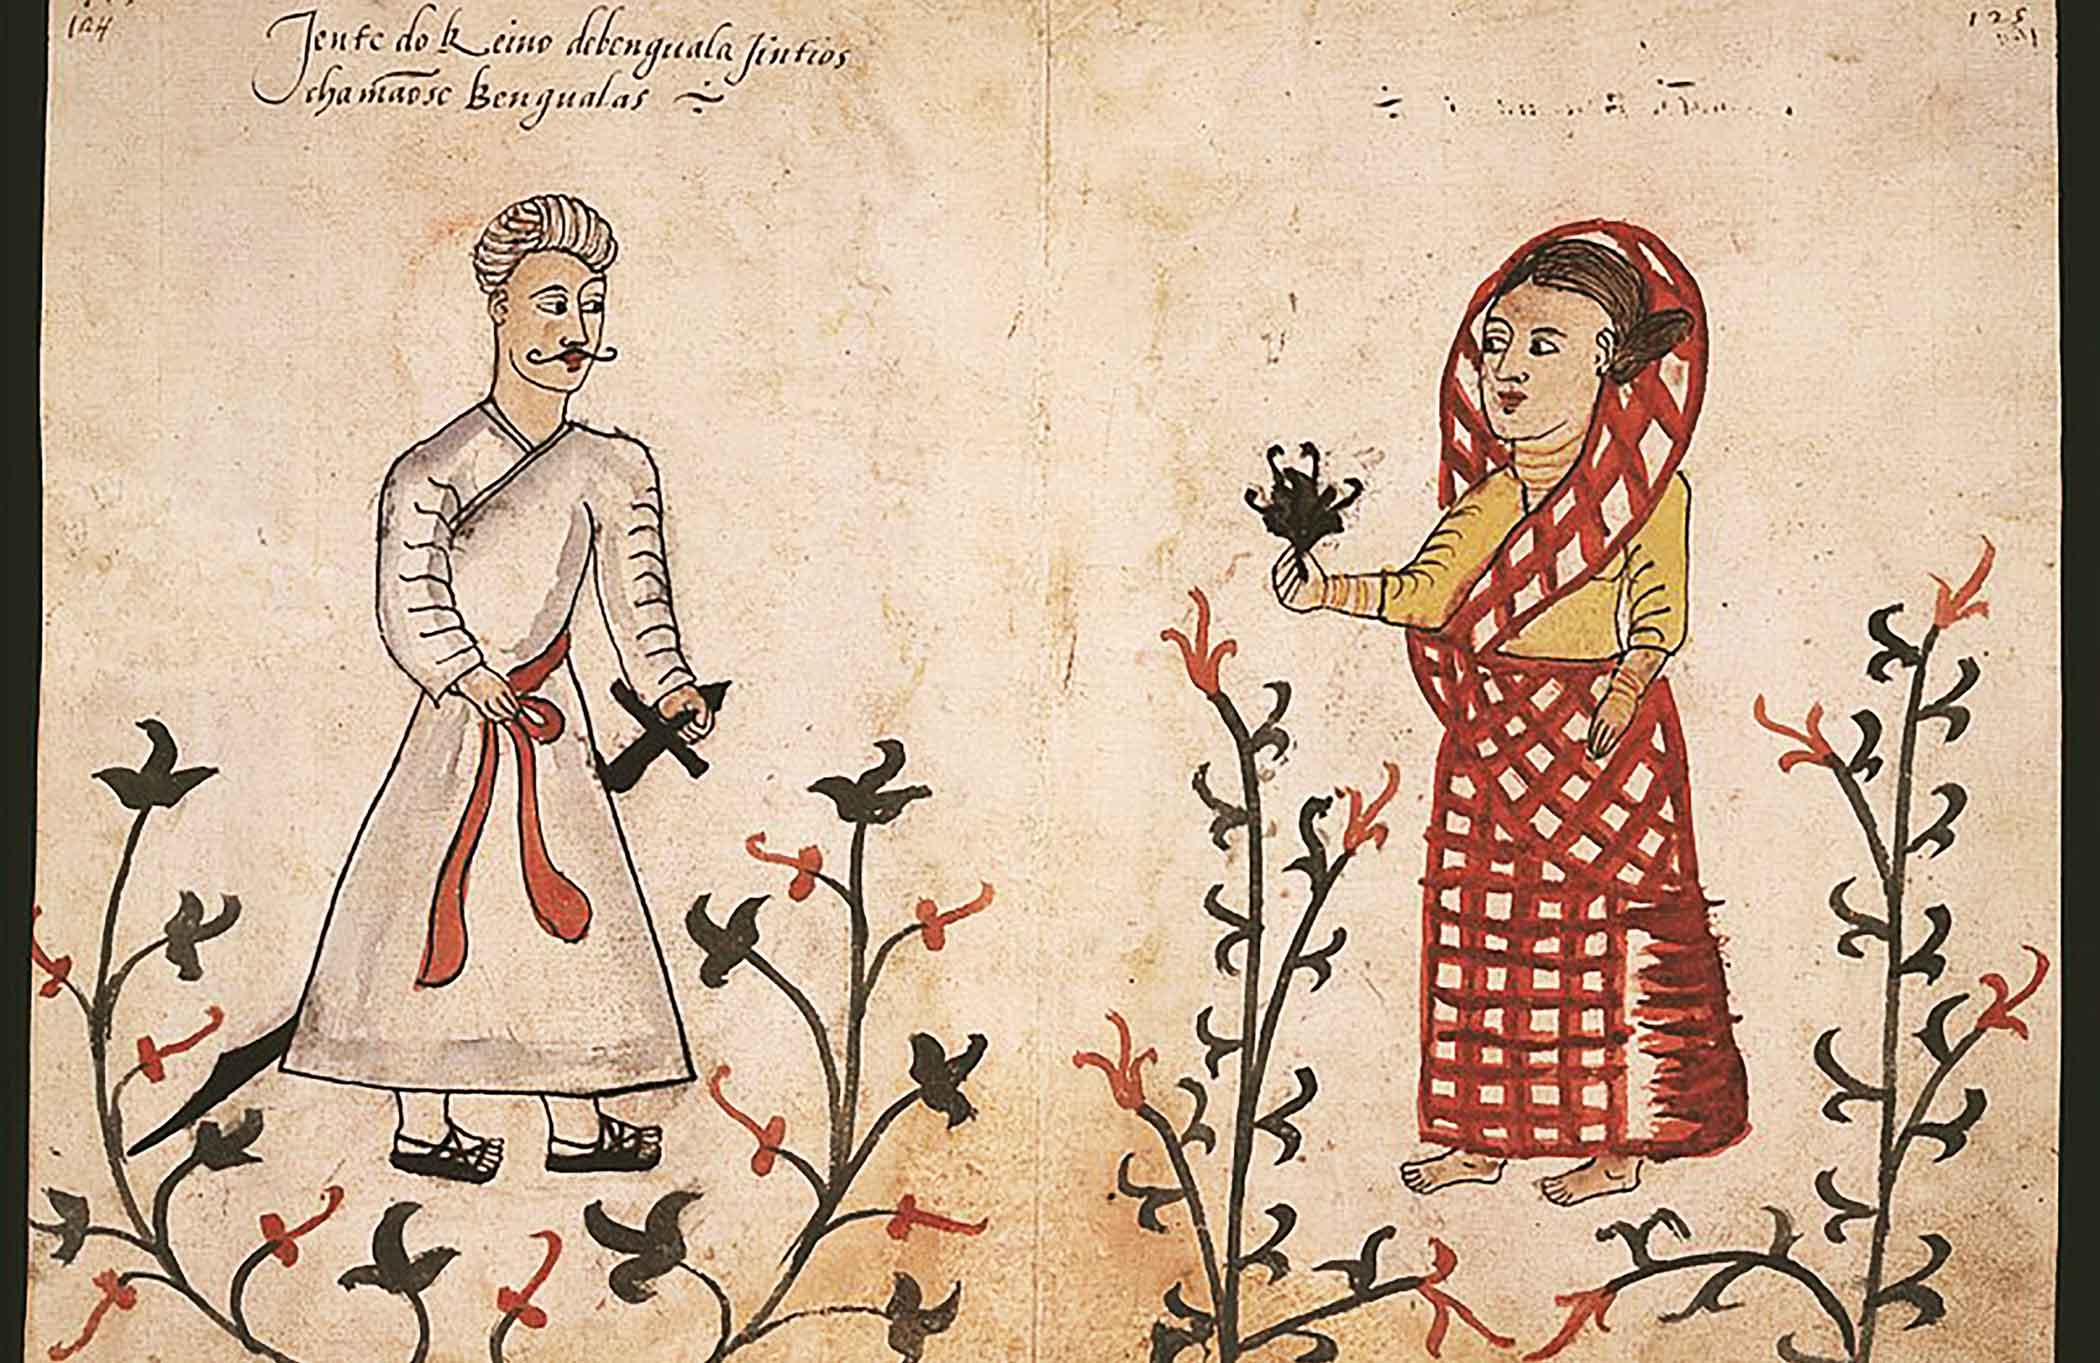 124
125
Jente do Reino debenguala Jintios
chamãose Bengualas